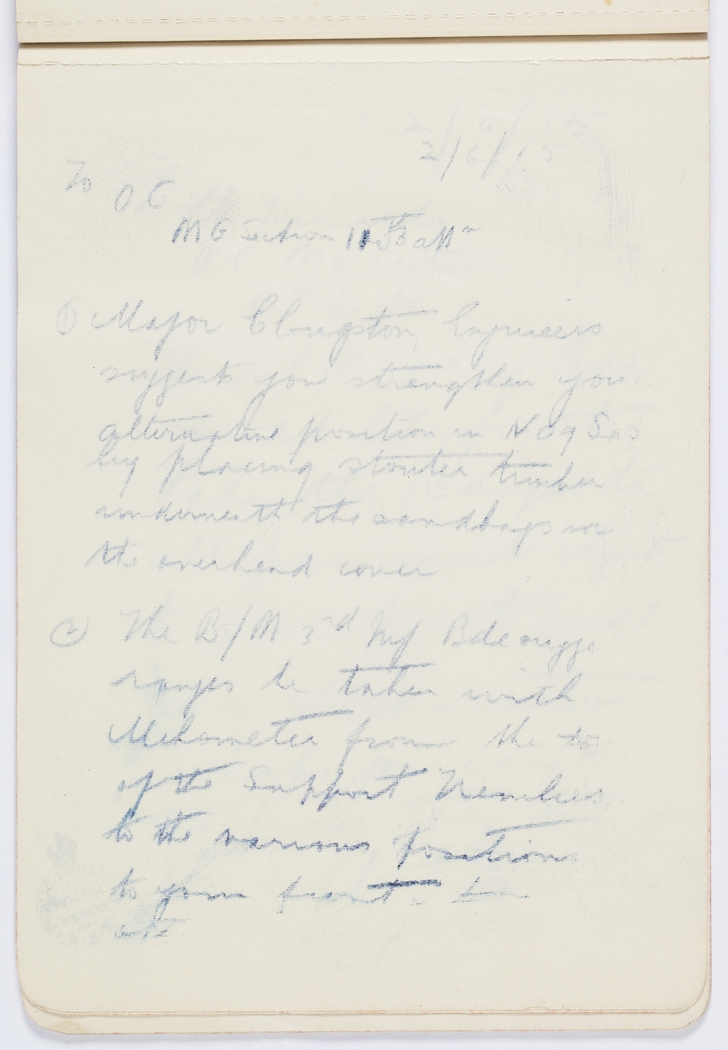 2/6/15
To O C
M G Section 11th Battn
① Major Clougston Engineers
suggests you strengthen your
alternative position in No 9 Sap
by placing stouter timber
underneath the sandbags in
the overhead cover
② The B/M 3rd Inf Bde sugg
ranges be taken with
Mekometer from the
of the Support Trenches
to the various positions
to your front